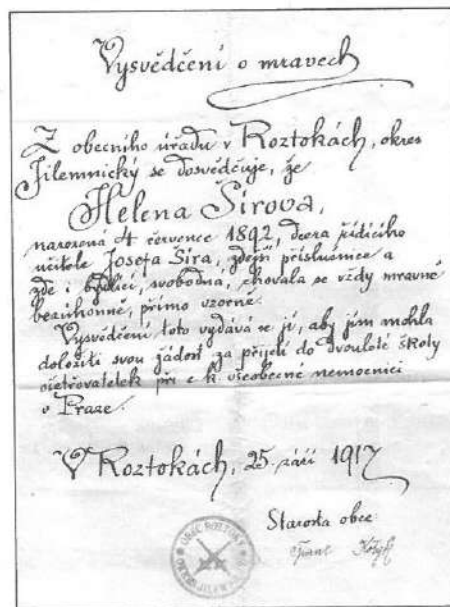 Vysvědčení o mravech
Z obecního úřadu v Roztokách, okres
Jilemnický se dosvědčuje, že
Helena Šírova,
narozená 4 července 1892, dcera řídícího
učitele Josefa Šíra, zdejší příslušnice a
zde i bydlící, svobodná, chovala se vždy mravně
bezúhonně, přímo vzorně.
Vysvědčení toto vydává se jí, aby jím mohla
doložiti svou žádost za přijetí do dvouleté školy
ošetřovatelek při c. k. všeobecné nemocnici
v Praze.
V Roztokách, 25. září 1917
Starosta obce:
OBEC ROZTOKY